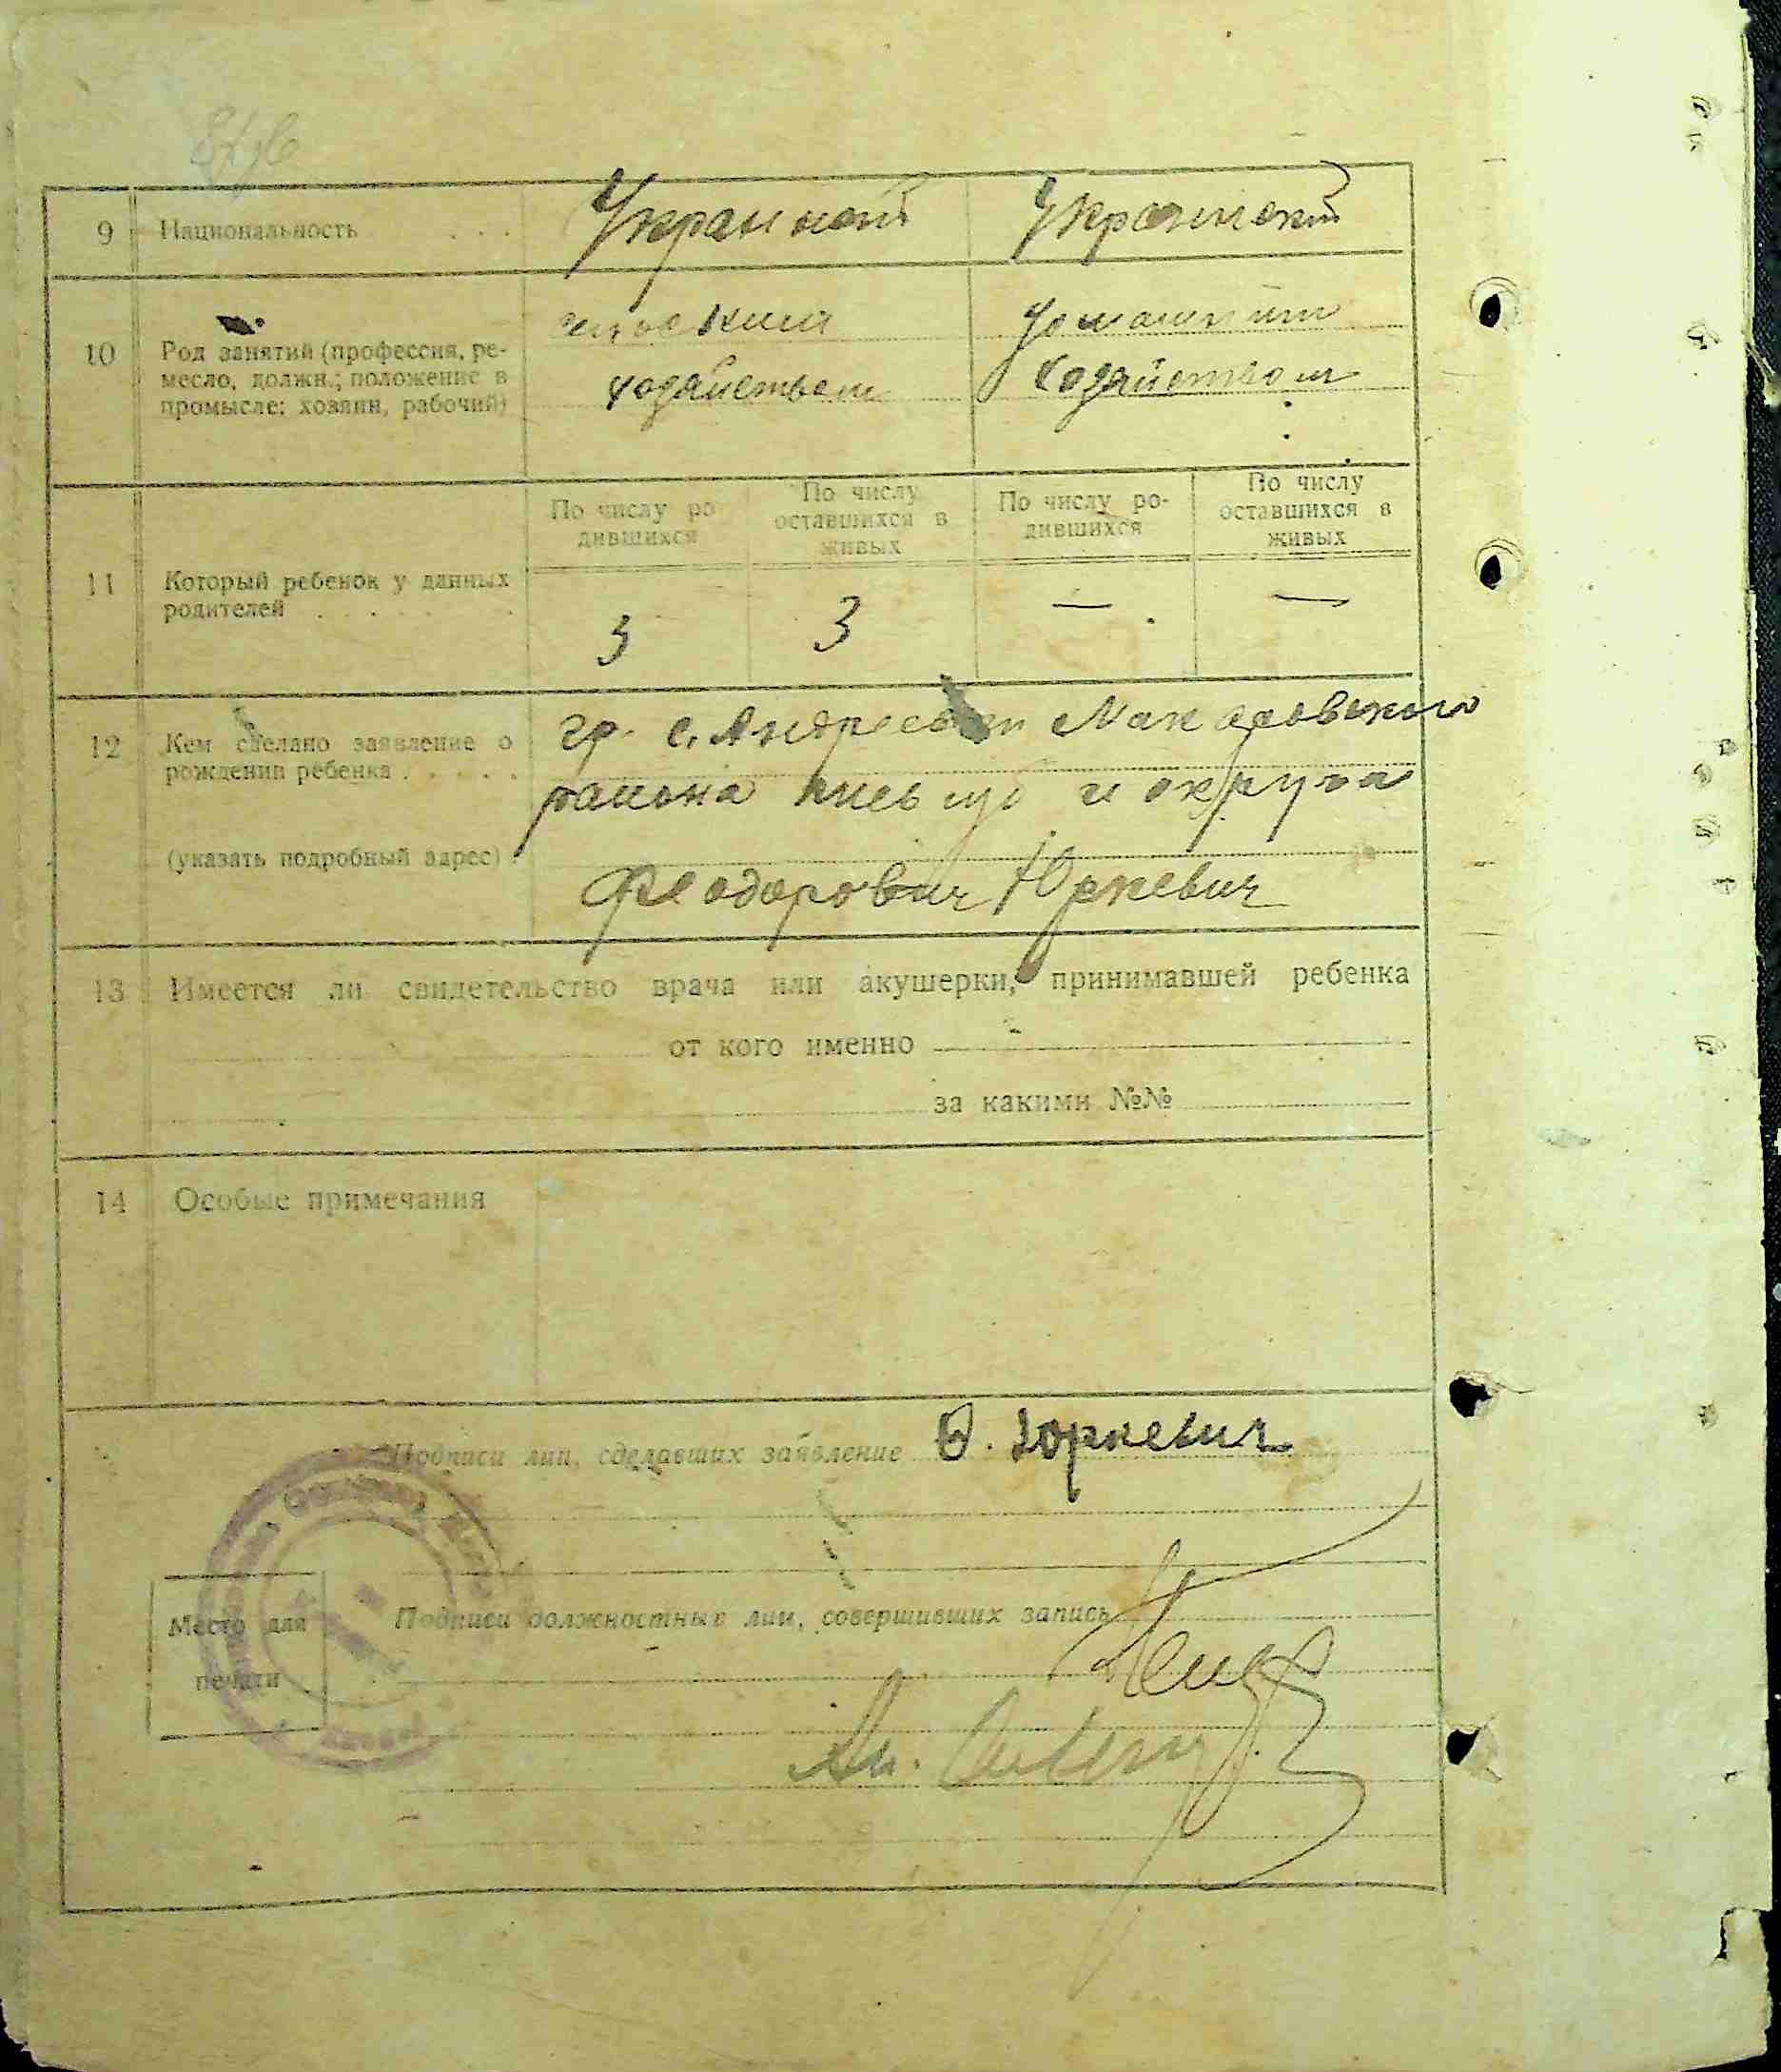 9 Национальность . . . Украинской Украинской
10 Род занятий (профессия, ре-
месло, должн.; положение в
промысле: хозяин, рабочий)
сельским
хозяйством
домашним
хозяйством
11 Который ребенок у данных
родителей . . . . .
По числу ро-
дившихся
По числу
оставшихся в
живых
По числу ро-
дившихся
По числу
оставшихся в
живых
3 3 — —
12 Кем сделано заявление о
рождении ребенка . . . . .
(указать подробный адрес) .
гр. с. Макаровского
района Киев губ и округа
Феодорович Юркевич
13 Имеется ли свидетельство врача или акушерки, принимавшей ребенка
от кого именно
за какими №№
14 Особые примечания
Подписи лиц, сделавших заявление Ф. Юркевич
Место для
печати
Подписи должностных лиц, совершивших запись